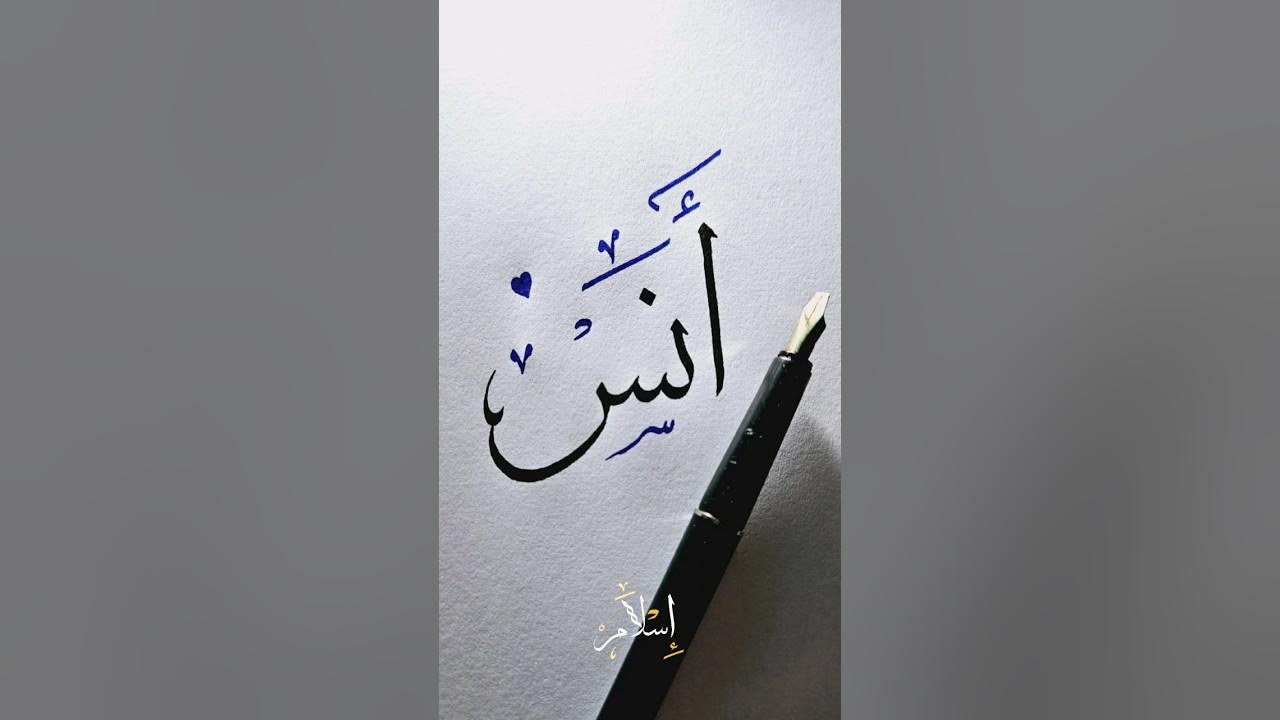 أَنَسْ
إِسْلَام